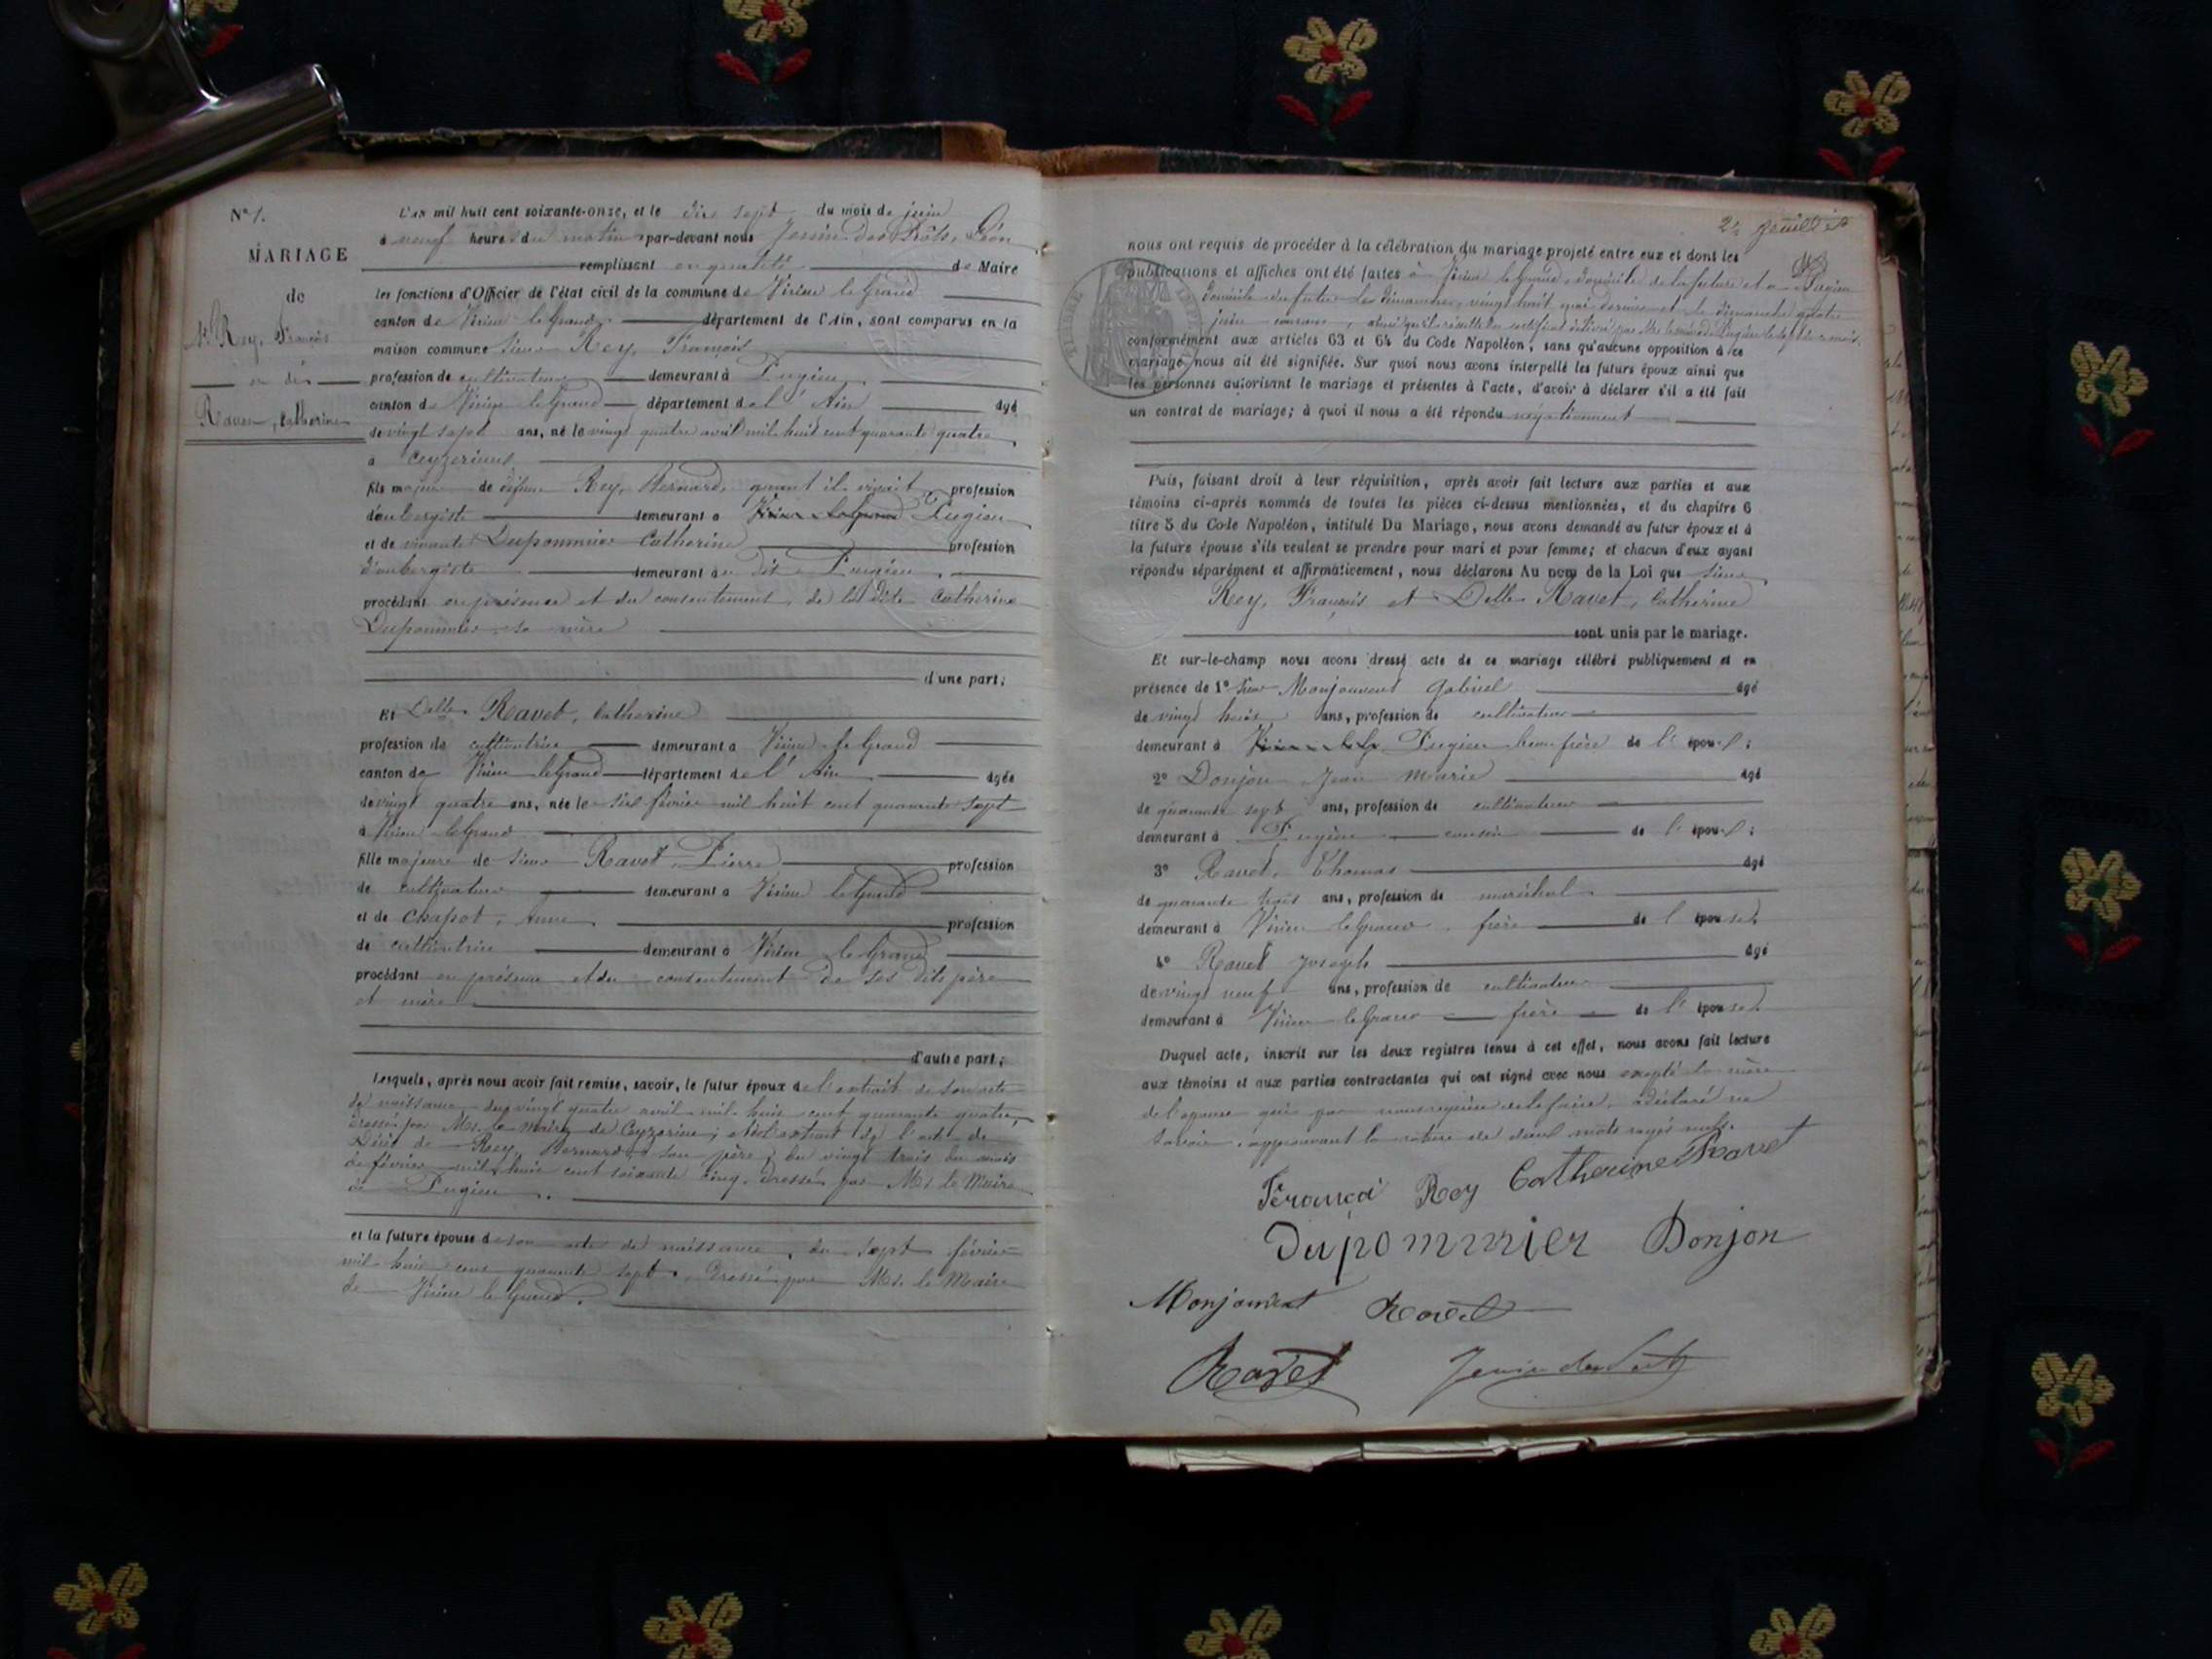 N° 1.
MARIAGE
de
Sr Rey, François
et de
Ravet, Catherine
L'an mil huit cent soixante-onze, et le dix sept du mois de juin
à neuf heures du matin par-devant nous Jenin des Prôts, Léon
remplissant en qualité de Maire
les fonctions d'Officier de l'état civil de la commune de Virieu le Grand
canton de Virieu le Grand département de l'Ain, sont comparus en la
maison commune sieur Rey, François
profession de cultivateur demeurant à Pugieu
canton de Virieu le Grand département de l'Ain âgé
de vingt sept ans, né le vingt quatre avril mil huit cent quarante quatre
à Ceyzerieux
fils majeur de défunt Rey, Bernard, quant il vivait profession
d'aubergiste demeurant à Virieu le Grand Pugieu
et de vivante Dupommier Catherine profession
d'aubergiste demeurant au dit Pugieu,
procédant en présence et du consentement de la dite Catherine
Dupommier, sa mère
d'une part;
Et Delle Ravet, Catherine
profession de cultivatrice demeurant à Virieu le Grand
canton de Virieu le Grand département de l'Ain âgée
de vingt quatre ans, née le six février mil huit cent quarante sept
à Virieu le Grand
fille majeure de sieur Ravet, Pierre profession
de cultivateur demeurant à Virieu le Grand
et de Chapot, Anne profession
de cultivatrice demeurant à Virieu le Grand
procédant en présence et du consentement de ses dits père
et mère
d'autre part;
Lesquels, après nous avoir fait remise, savoir, le futur époux de l'extrait de son acte
de naissance du vingt quatre avril mil huit cent quarante quatre,
dressé par Mr. le maire de Ceyzerieu; de l'extrait de l'acte de
Décès de Rey, Bernard, son père, du vingt trois du mois
de février mil huit cent soixante cinq, dressé par Mr. le Maire
de Pugieu.
et la future épouse de son acte de naissance, du sept février
mil huit cent quarante sept, dressé par Mr. le Maire
de Virieu le Grand.
2e feuillet
nous ont requis de procéder à la célébration du mariage projeté entre eux et dont les
publications et affiches ont été faites à Virieu le Grand, domicile de la future et à Pugieu
domicile du futur les dimanches, vingt huit mai dernier et le dimanche quatre
juin courant, ainsi qu'il résulte du certificat délivré par Mr. le maire de Pugieu
conformément aux articles 63 et 64 du Code Napoléon, sans qu'aucune opposition à ce
mariage nous ait été signifiée. Sur quoi nous avons interpellé les futurs époux ainsi que
les personnes autorisant le mariage et présentes à l'acte, d'avoir à déclarer s'il a été fait
un contrat de mariage; à quoi il nous a été répondu négativement
Puis, faisant droit à leur réquisition, après avoir fait lecture aux parties et aux
témoins ci-après nommés de toutes les pièces ci-dessus mentionnées, et du chapitre 6
titre 5 du Code Napoléon, intitulé Du Mariage, nous avons demandé au futur époux et à
la future épouse s'ils veulent se prendre pour mari et pour femme; et chacun d'eux ayant
répondu séparément et affirmativement, nous déclarons Au nom de la Loi que sieur
Rey, François et Delle Ravet, Catherine
sont unis par le mariage.
Et sur-le-champ nous avons dressé acte de ce mariage célébré publiquement et en
présence de 1° sieur Monjouvent Gabriel âgé
de vingt huit ans, profession de cultivateur
demeurant à Virieu le G. Pugieu beau frère de l'époux;
2° Donjon Jean Marie âgé
de quarante sept ans, profession de cultivateur
demeurant à Pugieu cousin de l'époux;
3° Ravet, Thomas âgé
de quarante trois ans, profession de maréchal
demeurant à Virieu le Grand, frère de l'épouse;
4° Ravet Joseph âgé
de vingt neuf ans, profession de cultivateur
demeurant à Virieu le Grand frère de l'épouse
Duquel acte, inscrit sur les deux registres tenus à cet effet, nous avons fait lecture
aux témoins et aux parties contractantes qui ont signé avec nous excepté la mère
de l'épouse qui par nous requise de le faire, a déclaré ne
savoir, approuvant la rature de deux mots rayés nuls.
Françoi Rey Catherine Ravet
Dupommier Donjon
Monjouvent Ravet
Ravet Jenin des Prôts